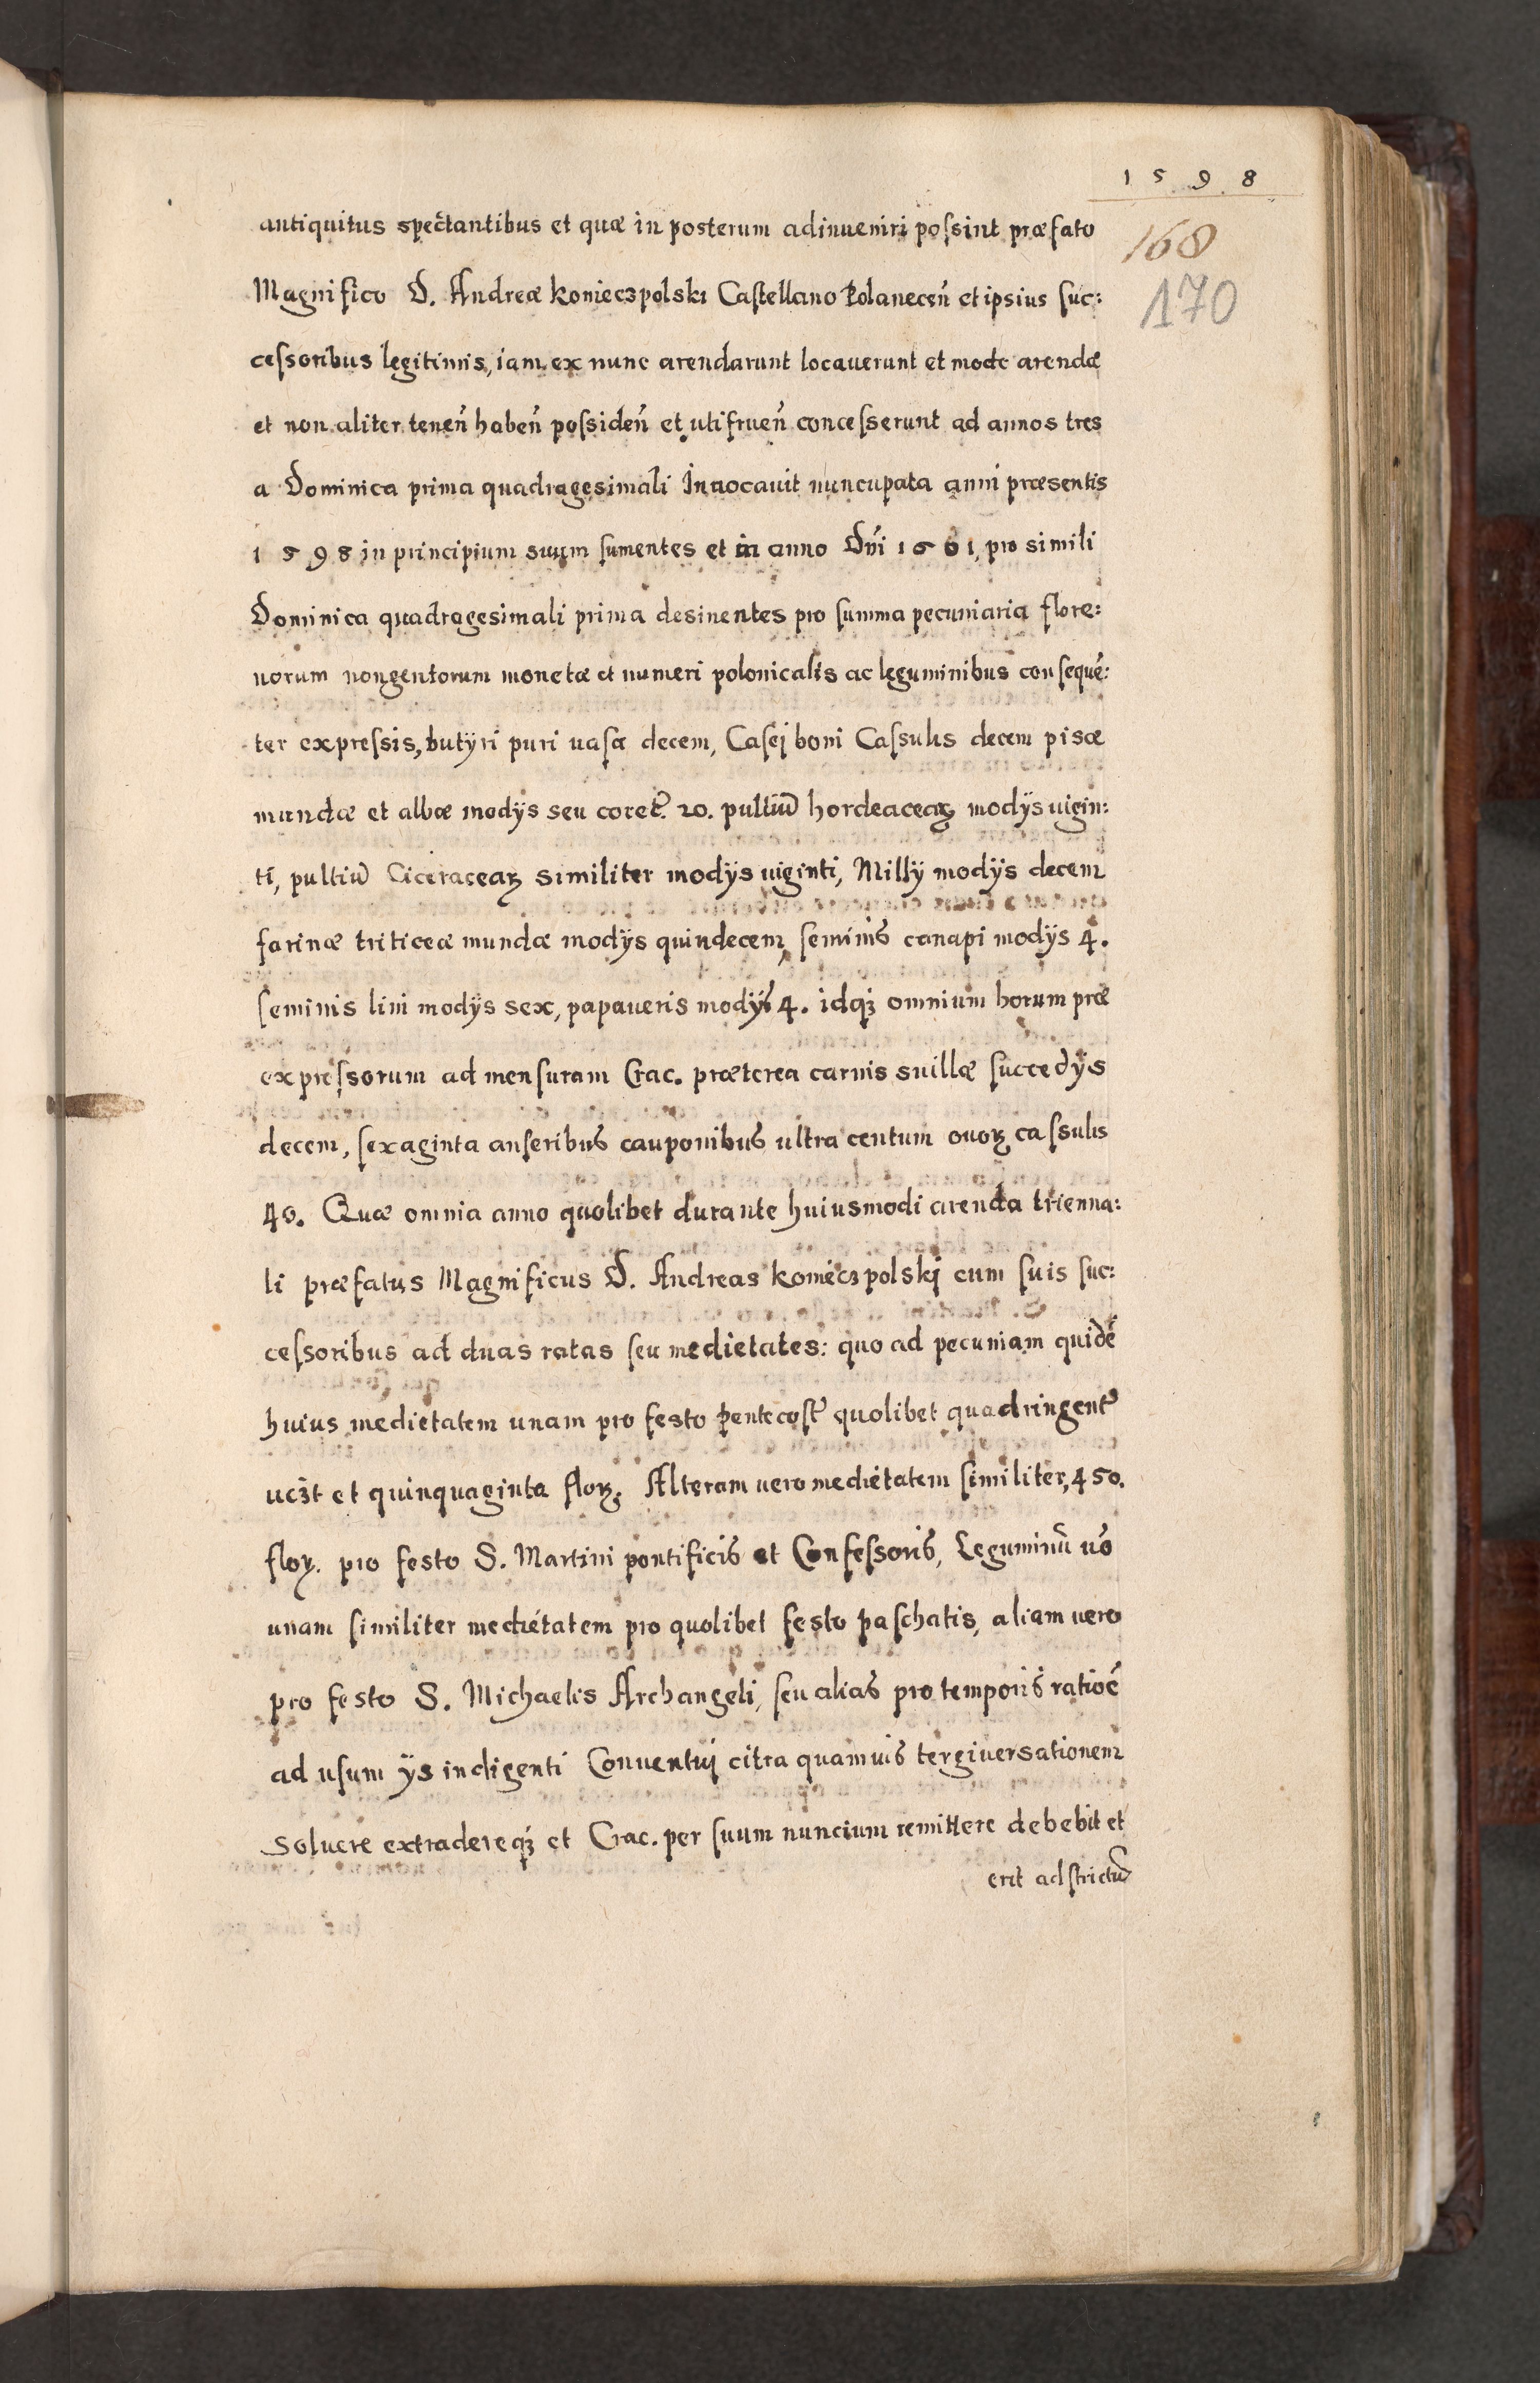 1598
168
170
antiquitus spectantibus et quæ in posterum adinueniri possint præfato
Magnifico D. Andreæ konieczpolski Castellano Polanecen̄ et ipsius suc:
cessoribus legitimis, iam ex nunc arendarunt locauerunt et modo arendæ
et non aliter tenen̄ haben̄ possiden̄ et utifruen̄ concesserunt ad annos tres
a Dominica prima quadragesimali Inuocauit nuncupata anni præsentis
1598 in principium suum sumentes et in anno Dn̄i 1601, pro simili
Dominica quadragesimali prima desinentes pro summa pecuniaria flore:
norum nongentorum monetæ et numeri polonicalis ac leguminibus consequē:
ter expressis, butÿri puri uasa decem, Casej boni Cassulis decem pisæ
mundæ et albæ modÿs seu coret̄. 20. pultiū hordeaceaꝝ modÿs uigin:
ti, pultiū Ciceraceaꝝ similiter modÿs uiginti, Millÿ modÿs decem
farinæ triticeæ mundæ modÿs quindecem, seminis canapi modÿs 4.
seminis lini modÿs sex, papaueris modÿs 4. idqꝫ omnium horum præ
expressorum ad mensuram Crac. præterea carnis suillæ succedÿs
decem, sexaginta anseribus cauponibus ultra centum ouoꝝ cassulis
40. Quæ omnia anno quolibet durante huiusmodi arenda trienna:
li præfatus Magnificus D. Andreas konieczpolskj cum suis suc:
cessoribus ad duas ratas seu medietates: quo ad pecuniam quidē
huius medietatem unam pro festo pentecost̄ quolibet quadringent̄
uczt et quinquaginta floꝝ. Alteram uero medietatem similiter, 450.
floꝝ. pro festo S. Martini pontificis et Confessoris, Leguminū uō
unam similiter medietatem pro quolibet festo paschatis, aliam uero
pro festo S. Michaelis Archangeli, seu alias pro temporis ratioē
ad usum ÿs indigenti Conuentuj citra quamuis tergiuersationem
soluere extradereqꝫ et Crac. per suum nuncium remittere debebit et
erit adstrictū